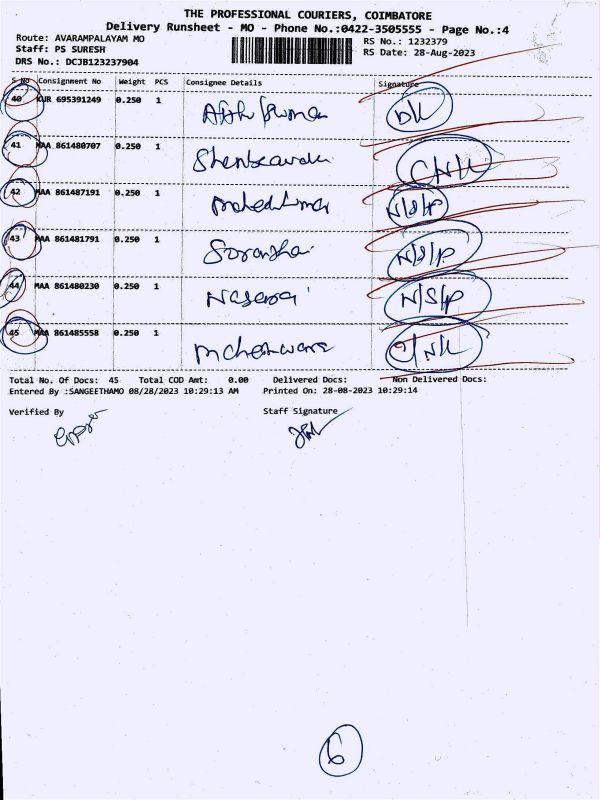 THE PROFESSIONAL COURIERS, COIMBATORE
Delivery Runsheet - MO - Phone No.:0422-3505555 - Page No.:4
Route: AVARAMPALAYAM MO RS No.: 1232379
Staff: PS SURESH RS Date: 28-Aug-2023
DRS No.: DCJB123237904
S No Consignment No Weight PCS Consignee Details Signature
40 KUR 695391249 0.250 1
41 MAA 861480707 0.250 1
42 MAA 861487191 0.250 1 N/S/P
43 MAA 861481791 0.250 1 N/S/P
44 MAA 861480230 0.250 1 N/S/P
45 MAA 861485558 0.250 1
Total No. Of Docs: 45 Total COD Amt: 0.00 Delivered Docs: Non Delivered Docs:
Entered By :SANGEETHAMO 08/28/2023 10:29:13 AM Printed On: 28-08-2023 10:29:14
Verified By Staff Signature
6